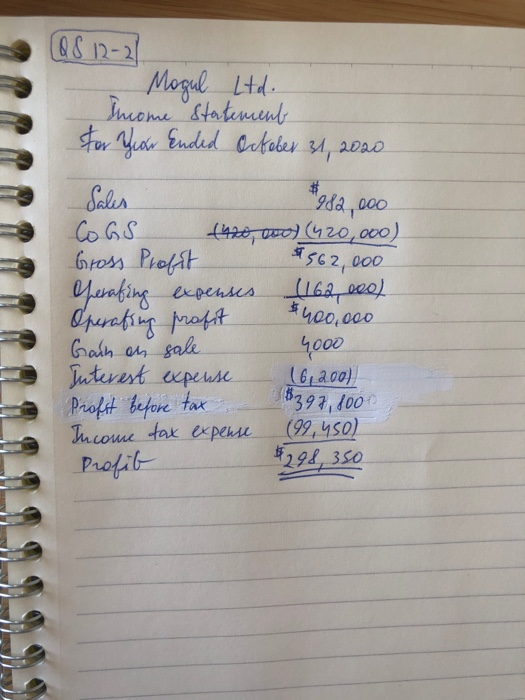 QS 12-2
Mogul Ltd.
Income Statement
For Year Ended October 31, 2020
Sales $982,000
CoGS (420,000) (420,000)
Gross Profit $562,000
Operating expenses (162,000)
Operating profit $400,000
Gain on sale 4,000
Interest expense (6,200)
Profit before tax $397,800
Income tax expense (99,450)
Profit $298,350